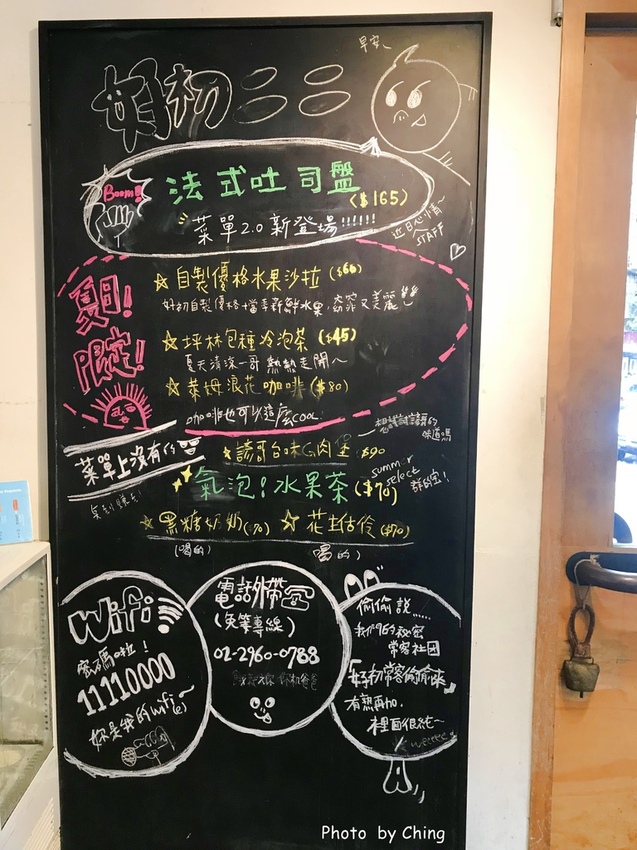 早安
好初二二
Boom!!
法式吐司盤
($165)
菜單2.0新登場!!!!!!
近日心情~
STAFF
夏日!
限定!
☆自製優格水果沙拉($60)
好初自製優格+當季新鮮水果,窈窕又美麗
☆坪林包種冷泡茶($45)
夏天清涼一哥 熱熱走開~
☆萊姆浪花咖啡($80)
咖啡也可以這麼cool
菜單上沒有的
$90
summer
select
氣泡!水果茶($70)
☆黑糖奶奶($70) ☆花生佑伶($70)
(喝的) (喝的)
Wifi
密碼啦!
11110000
妳是我的wifi~
電話外帶
(免等專線)
02-2960-0788
偷偷說......
我們的秘密
常客社團
「好初常客偷偷來」
有熟再加,
裡面很純~
Photo by Ching